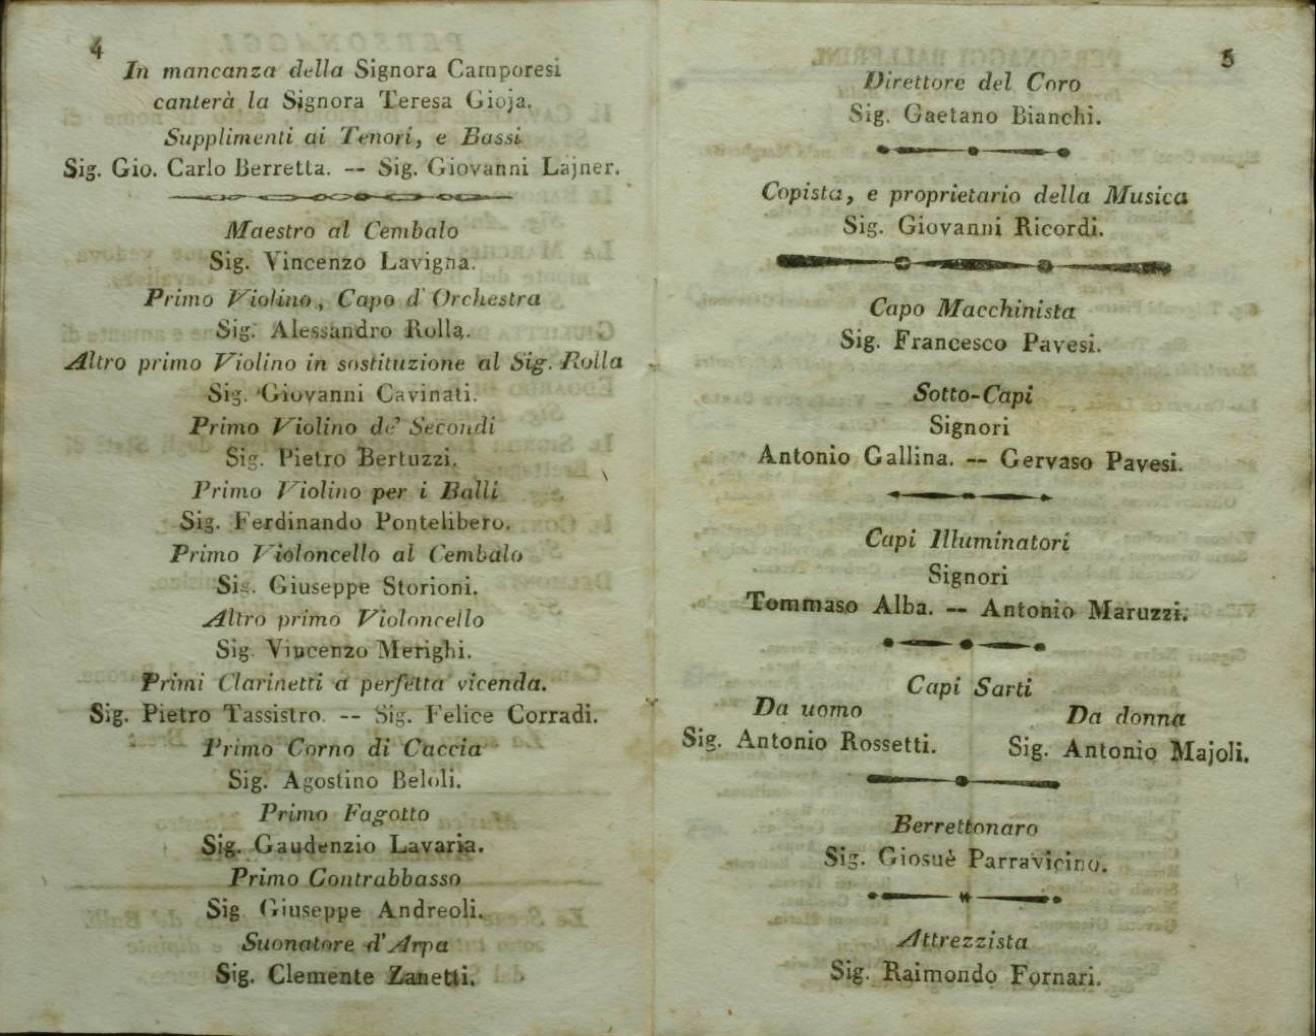 4
In mancanza della Signora Camporesi
canterà la Signora Teresa Gioja.
Supplimenti ai Tenori, e Bassi
Sig. Gio. Carlo Berretta. -- Sig. Giovanni Lajner.
Maestro al Cembalo
Sig. Vincenzo Lavigna.
Primo Violino, Capo d'Orchestra
Sig. Alessandro Rolla.
Altro primo Violino in sostituzione al Sig. Rolla
Sig. Giovanni Cavinati.
Primo Violino de' Secondi
Sig. Pietro Bertuzzi.
Primo Violino per i Balli
Sig. Ferdinando Pontelibero.
Primo Violoncello al Cembalo
Sig. Giuseppe Storioni.
Altro primo Violoncello
Sig. Vincenzo Merighi.
Primi Clarinetti a perfetta vicenda.
Sig. Pietro Tassistro. -- Sig. Felice Corradi.
Primo Corno di Caccia
Sig. Agostino Beloli.
Primo Fagotto
Sig. Gaudenzio Lavaria.
Primo Contrabbasso
Sig Giuseppe Andreoli.
Suonatore d'Arpa
Sig. Clemente Zanetti.
5
Direttore del Coro
Sig. Gaetano Bianchi.
Copista, e proprietario della Musica
Sig. Giovanni Ricordi.
Capo Macchinista
Sig. Francesco Pavesi.
Sotto-Capi
Signori
Antonio Gallina. -- Gervaso Pavesi.
Capi Illuminatori
Signori
Tommaso Alba. -- Antonio Maruzzi.
Capi Sarti
Da uomo Da donna
Sig. Antonio Rossetti. Sig. Antonio Majoli.
Berrettonaro
Sig. Giosuè Parravicino.
Attrezzista
Sig. Raimondo Fornari.